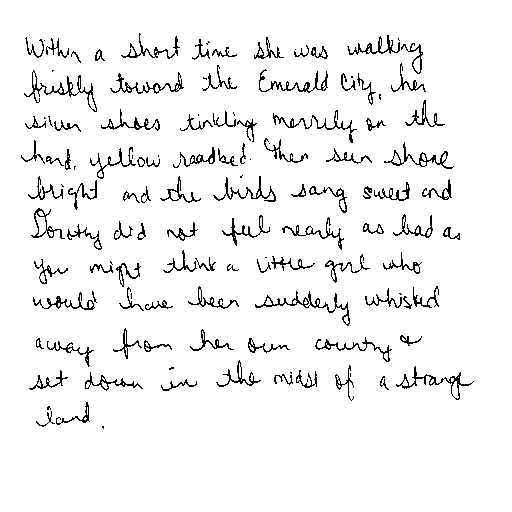 Within a short time she was walking
briskly toward the Emerald City, her
silver shoes tinkling merrily on the
hard, yellow roadbed. Then sun shone
bright and the birds sang sweet and
Dorothy did not feel nearly as bad as
you might think a little girl who
would have been suddenly whisked
away from her own country &
set down in the midst of a strange
land.